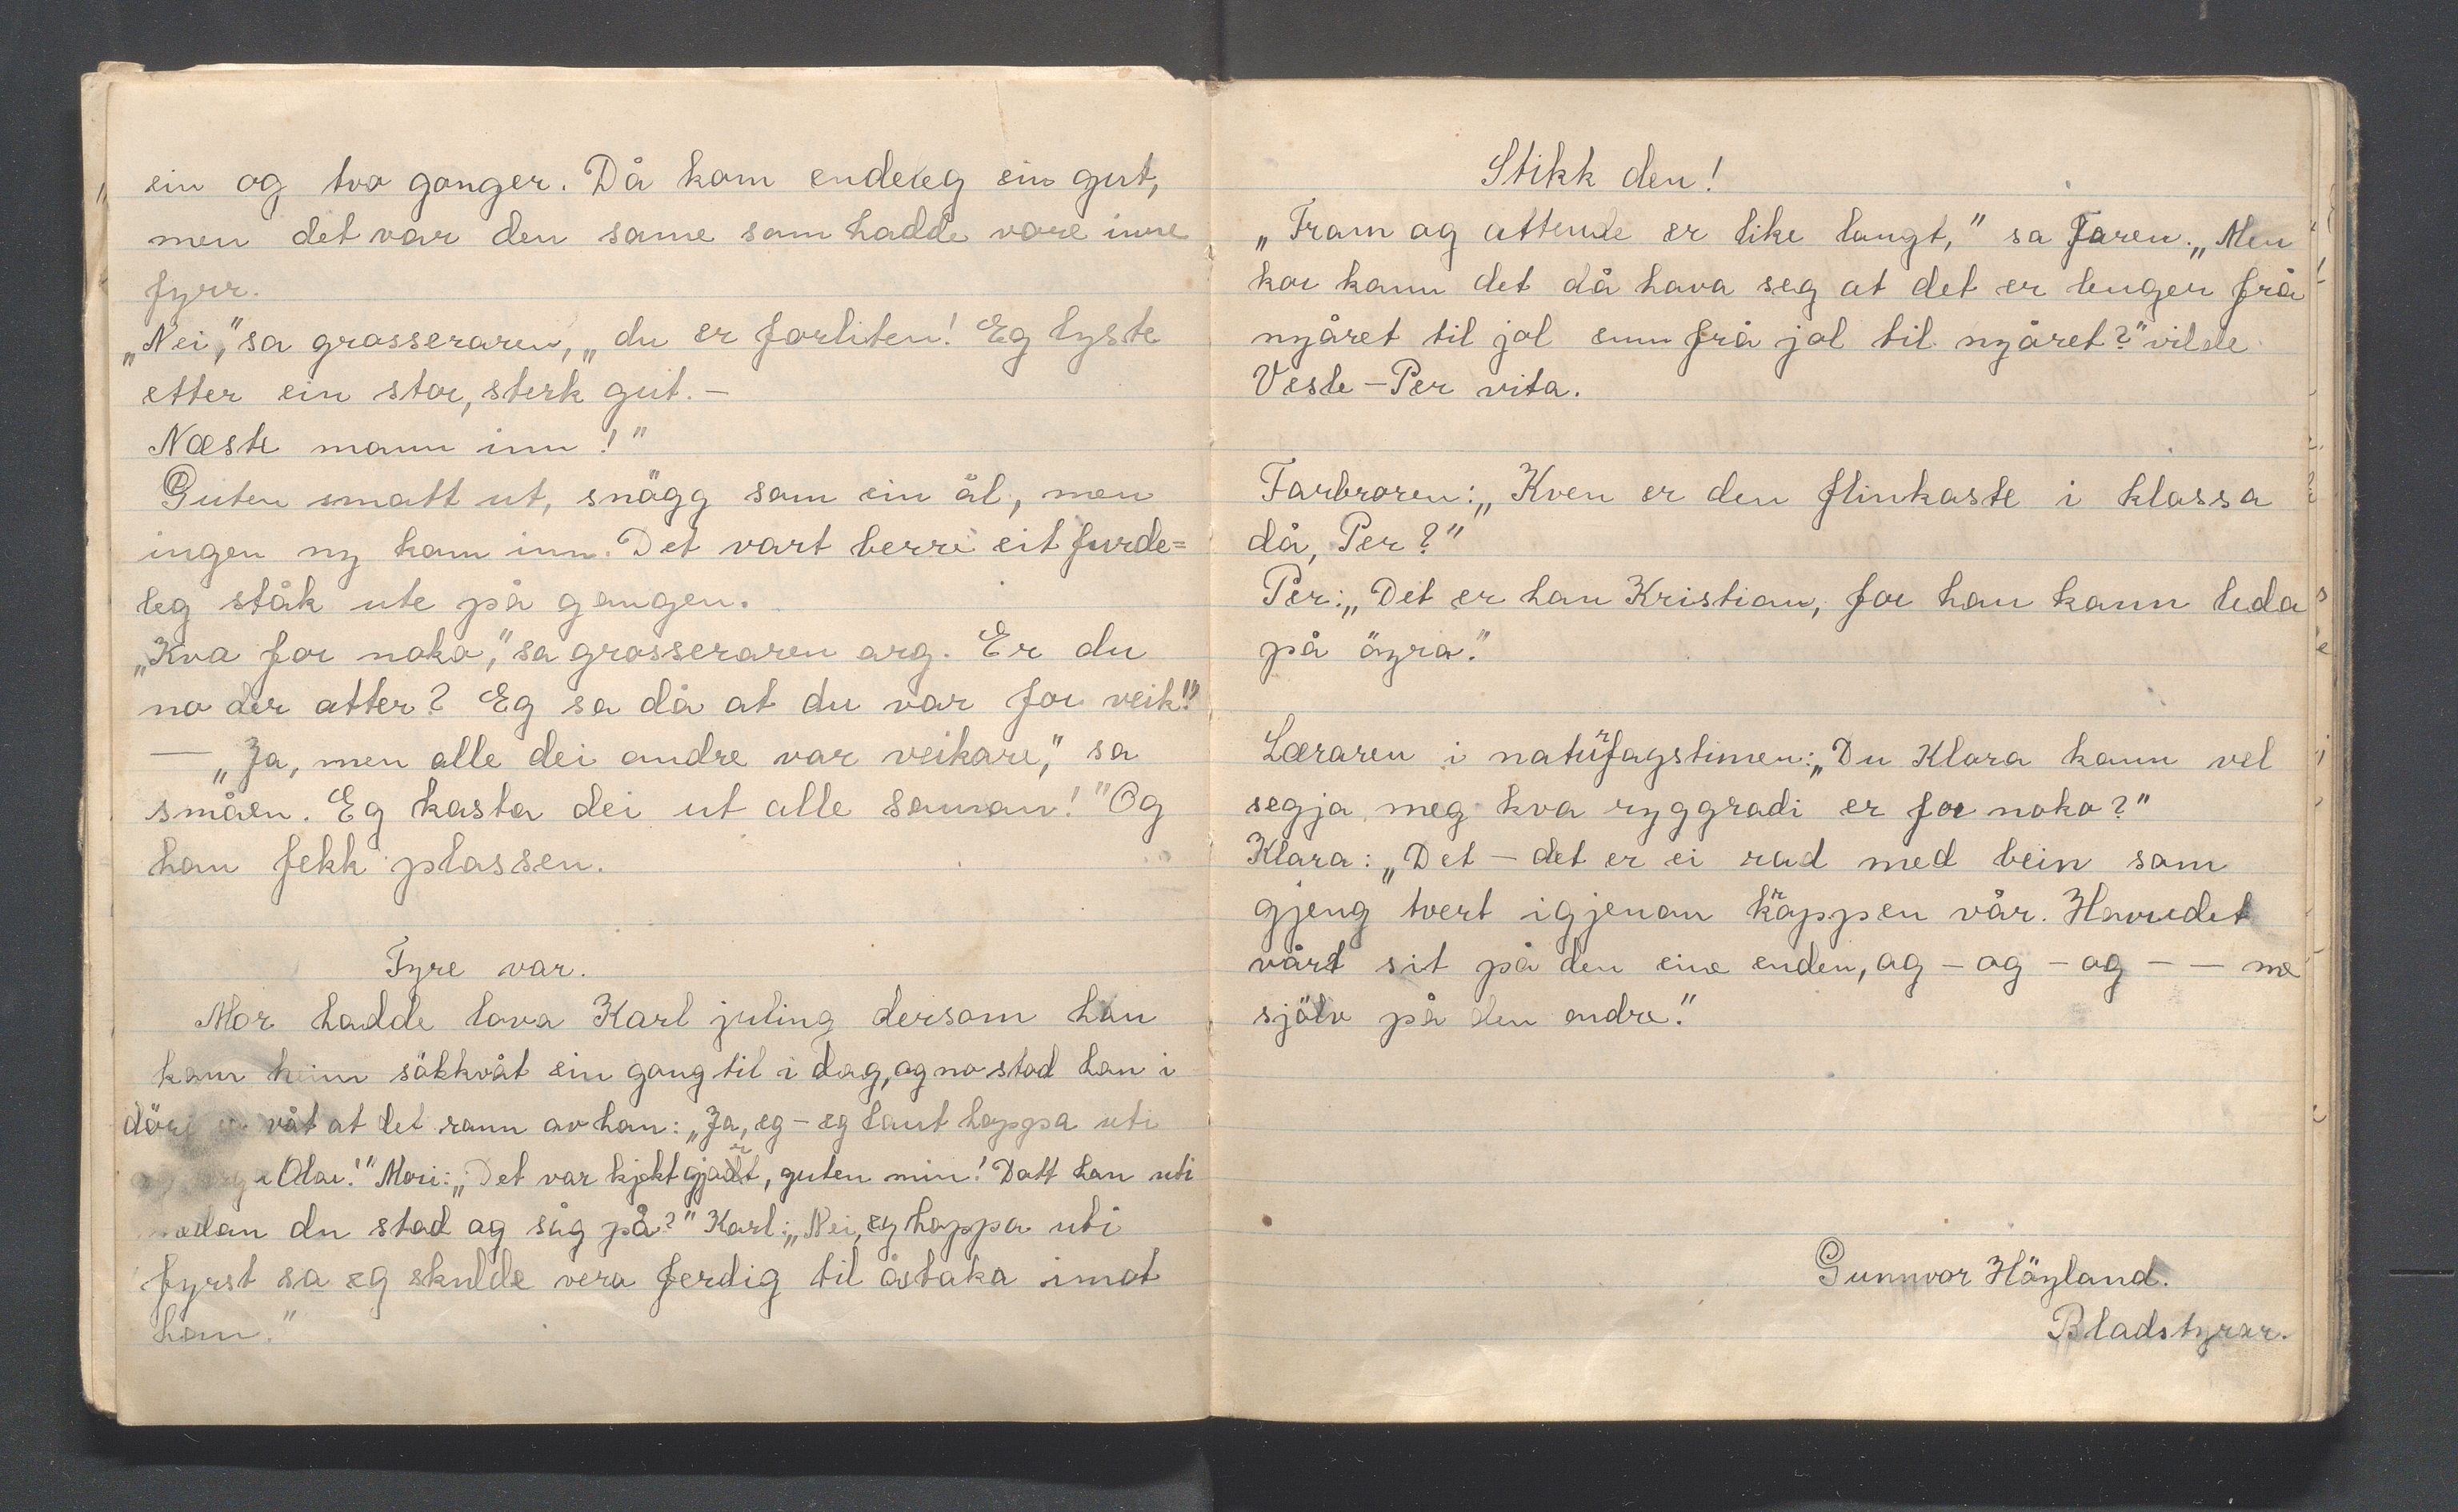 ein og tvo gonger. Då kom endeleg ein gut,
men det var den same som hadde vore inne
fyrr.
„Nei," sa grosseraren, „du er forliten! Eg lyste
etter ein stor, sterk gut. —
Næste mann inn!"
Guten smatt ut, snögg som ein ål, men
ingen ny kom inn. Det vart berre eit furde=
leg ståk ute på gangen.
„Kva for noko," sa grosseraren arg. Er du
no der atter? Eg sa då at du var for veik!"
— „Ja, men alle dei andre var veikare," sa
småen. Eg kasta dei ut alle saman!" Og
han fekk plassen.
Fyre var.
Mor hadde lova Karl juling dersom han
kom heim sökkvåt ein gong til i dag, og no stod han i
döri våt at det rann av han: „Ja, eg – eg laut hoppa uti
Olav!" Mori: „Det var kjekt gjort, guten min! Datt han uti
medan du stod og såg på?" Karl: „Nei, eg hoppa uti
fyrst sa eg skulde vera ferdig til åstaka imot
han."
Stikk den!
„Fram og attende er like langt," sa Faren. „Men
kor kann det då hava seg at det er lenger frå
nyåret til jol enn frå jol til nyåret?" vilde
Vesle-Per vita.
Farbroren: „Kven er den flinkaste i klassa
då, Per?"
Per: „Det er han Kristian, for han kann leda
på öyra."
Læraren i naturfagstimen: „Du Klara kann vel
segja meg kva ryggradi er for noko?"
Klara: „Det – det er ei rad med bein som
gjeng tvert igjenom kroppen vår. Hovudet
vårt sit på den eine enden, og – og – og – — me
sjölv på den andre."
Gunnvor Höyland.
Bladstyrar.